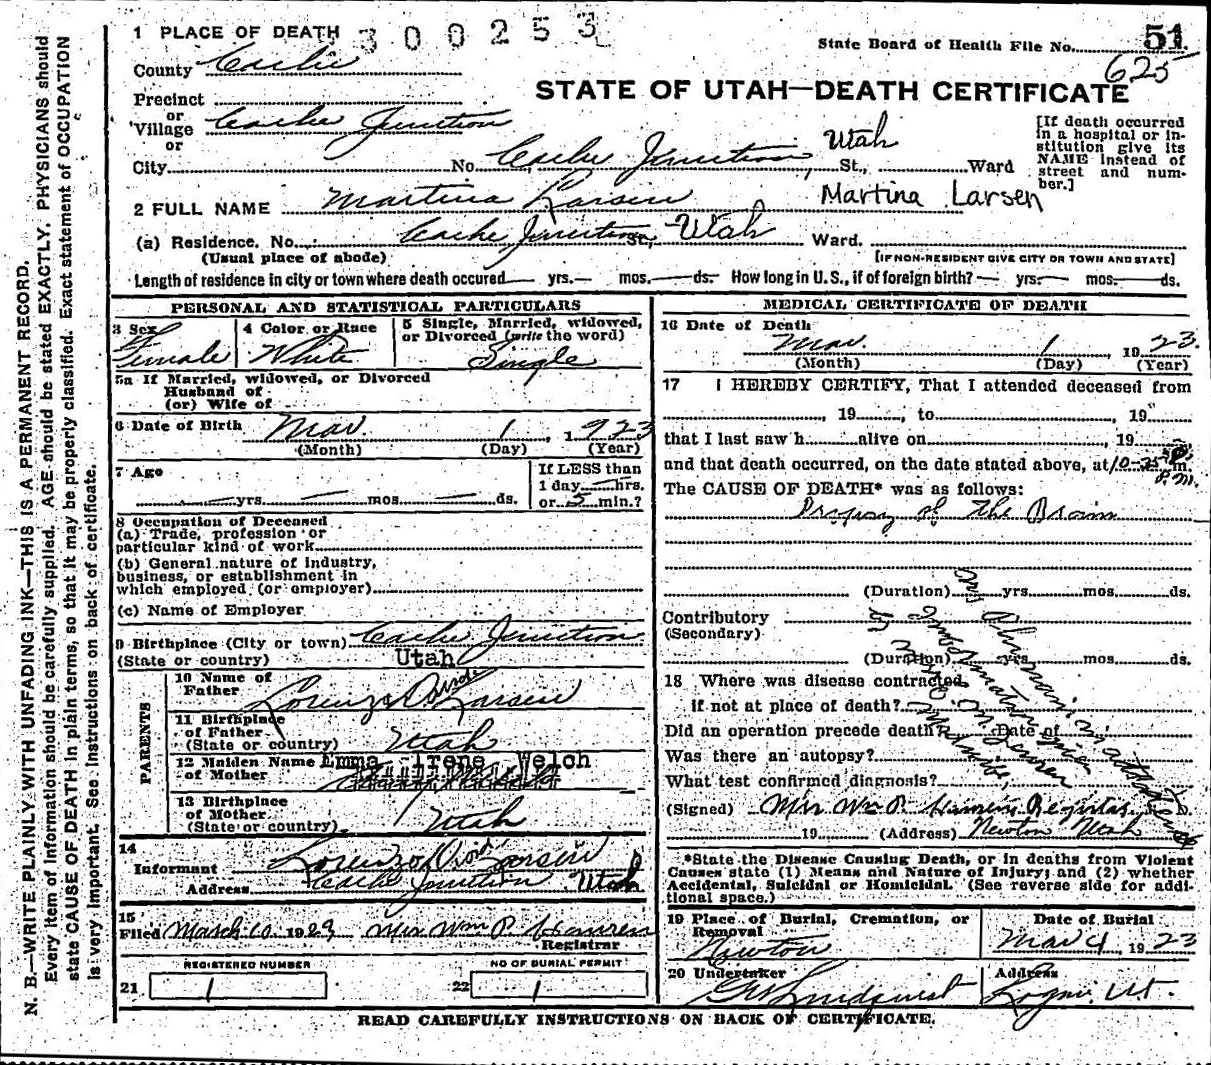 1 PLACE OF DEATH 300253
State Board of Health File No. 51.
625
County Cache
STATE OF UTAH—DEATH CERTIFICATE
Precinct
or
Village Cache Junction
or
City No. Cache Junction, Utah St., Ward
[If death occurred in a hospital or institution give its NAME instead of street and number.]
2 FULL NAME Martina Larsen Martina Larsen
(a) Residence. No. Cache Junction St., Utah Ward.
(Usual place of abode) [IF NON-RESIDENT GIVE CITY OR TOWN AND STATE]
Length of residence in city or town where death occured — yrs. — mos. — ds. How long in U. S., if of foreign birth? — yrs. — mos. — ds.
PERSONAL AND STATISTICAL PARTICULARS
3 Sex Female
4 Color or Race White
5 Single, Married, widowed, or Divorced (write the word) Single
5a If Married, widowed, or Divorced
Husband of
(or) Wife of
6 Date of Birth Mar. 1, 1923
(Month) (Day) (Year)
7 Age — yrs. — mos. — ds.
If LESS than
1 day — hrs.
or 5 min.?
8 Occupation of Deceased
(a) Trade, profession or
particular kind of work
(b) General nature of Industry,
business, or establishment in
which employed (or employer)
(c) Name of Employer
9 Birthplace (City or town) Cache Junction
(State or country) Utah
PARENTS
10 Name of Father Lorenzo Larsen
11 Birthplace of Father (State or country) Utah
12 Maiden Name of Mother Emma Irene Welch
13 Birthplace of Mother (State or country) Utah
14
Informant Lorenzo Larsen
Address Cache Junction Utah
15
Filed March 10 1923 Mrs Wm P. Hansen
Registrar
REGISTERED NUMBER NO OF BURIAL PERMIT
21 1 22 1
MEDICAL CERTIFICATE OF DEATH
16 Date of Death
Mar. 1, 1923.
(Month) (Day) (Year)
17 I HEREBY CERTIFY, That I attended deceased from
, 19 , to , 19
that I last saw h alive on , 19
and that death occurred, on the date stated above, at 10-25 P. m.
P.M.
The CAUSE OF DEATH* was as follows:
Dropsy of the Brain
(Duration) yrs. mos. ds.
Contributory
(Secondary)
(Duration) yrs. mos. ds.
18 Where was disease contracted
if not at place of death?
Did an operation precede death? Date of
Was there an autopsy?
What test confirmed diagnosis?
(Signed) Mrs Wm P. Hansen, Registrar
19 (Address) Newton Utah
*State the Disease Causing Death, or in deaths from Violent
Causes state (1) Means and Nature of Injury; and (2) whether
Accidental, Suicidal or Homicidal. (See reverse side for additional space.)
19 Place of Burial, Cremation, or Removal
Newton
Date of Burial
Mar 4 1923
20 Undertaker
Lindquist
Address
Logan, Ut.
READ CAREFULLY INSTRUCTIONS ON BACK OF CERTIFICATE.
N. B.—WRITE PLAINLY WITH UNFADING INK—THIS IS A PERMANENT RECORD.
Every item of information should be carefully supplied. AGE should be stated EXACTLY. PHYSICIANS should
state CAUSE OF DEATH in plain terms, so that it may be properly classified. Exact statement of OCCUPATION
is very important. See Instructions on back of certificate.